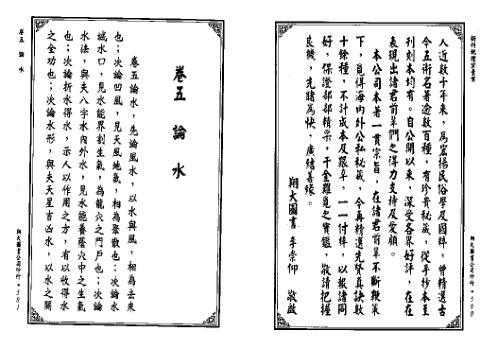 新刊地理宗書
人近數十年來，為宣揚民俗學及國粹，曾精選古
今五術名著逾數百種，有珍貴秘藏，從手抄本至
刊刻本均有。自公開以來，深受各界好評，在在
表現出諸君前輩們之得力支持及愛顧。
本公司本著一貫宗旨，在諸君前輩不斷鞭策
下，覓得海內外公私秘藏，今再精選先賢真訣數
十餘種，不計成本及艱辛，一一付梓，以報諸同
好，保證部部精深，千金難覓之寶鑑，敬請把握
良機，先睹為快，廣結善緣。
翔大圖書 李崇仰 敬啟
翔大圖書公司印行
卷五 論水
卷五 論水
卷五論水，先論風水，以水與風，相為去來
也；次論凹風，見天風地氣，相為聚散也；次論水
城水口，見水能界割生氣，為龍穴之門戶也；次論
水法，與夫八字水內外水，見水能養蔭穴中之生氣
也；次論折水得水，示人以作用之方，有以收得水
之全功也；次論水形，與夫天星吉凶水，以水之關
翔大圖書公司印行•581